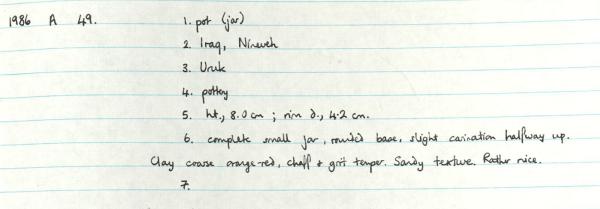 1986 A 49. 1. pot (jar)
2. Iraq, Nineveh
3. Uruk
4. pottery
5. ht., 8.0 cm ; rim d., 4.2 cm.
6. complete small jar, rounded base, slight carination halfway up.
Clay coarse orange-red, chaff & grit temper. Sandy texture. Rather nice.
7.